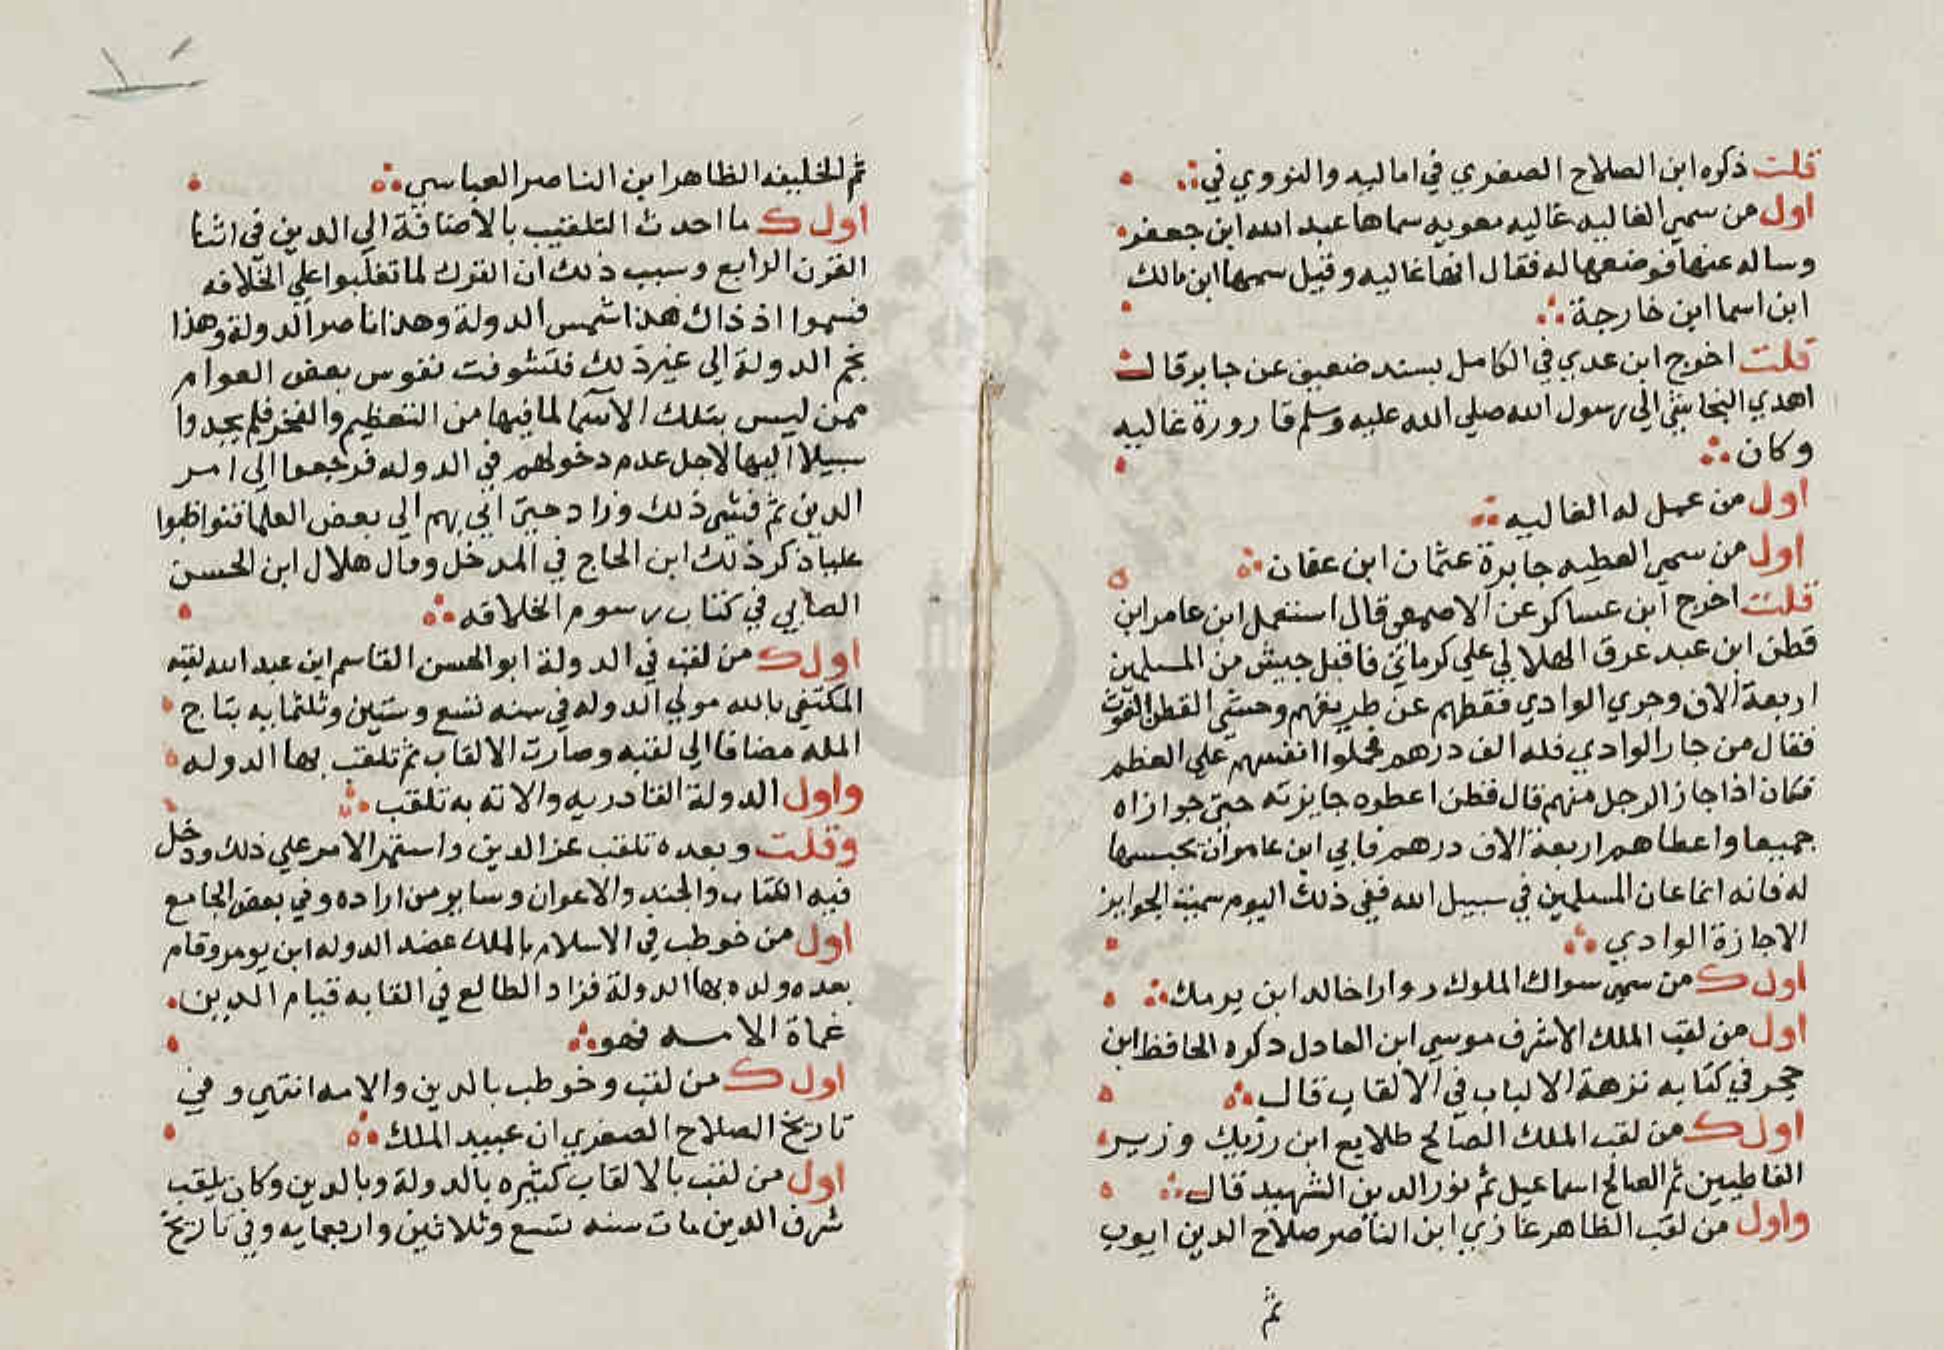 قلت ذكره ابن الصلاح الصفري في اماليه والنووي في
اول من سمى الغاليه غاليه معويه سماها عبد الله ابن جعفر
وساله عنها فوضعها له فقال انها غاليه وقيل سمها ابن مالك
ابن اسما ابن خارجة
قلت اخرج ابن عدي في الكامل بسند ضعيف عن جابر قال
اهدي النجاشي الى رسول الله صلى الله عليه وسلم قارورة غاليه
وكان
اول من عمل له الغاليه
اول من سمى العطيه جايزة عثمان ابن عفان
قلت اخرج ابن عساكر عن الاصمعي قال استعمل ابن عامر ابن
قطن ابن عبد عوف الهلالي علي كرماني فاقبل جيش من المسلمين
اربعة الاف وجري الوادي فقطهم عن طريقهم وخشي القطن الفوت
فقال من جاز الوادي فله الف درهم فحملوا انفسهم علي العظم
فكان اذا جاز الرجل منهم قال قطن اعطوه جايزته حتى جوازاه
جميعا واعطاهم اربعة الاف درهم فابي ابن عامر ان يحبسها
له فانه انما عان المسلمين في سبيل الله ففي ذلك اليوم سميت الجوايز
الاجازة الوادي
اول ك من سمى سواك الملوك خالد ابن برمك
اول من لقب الملك الاشرف موسي ابن العادل ذكره الحافظ ابن
حجر في كتابه نزهة الالباب في الالقاب قال
اول ك من لقب الملك الصالح طلايع ابن رزيك وزير
الفاطميين ثم الصالح اسماعيل ثم نور الدين الشهيد قال
واول من لقب الظاهر غازي ابن الناصر صلاح الدين ايوب
ثم
ثم للخليفه الظاهر ابن الناصر العباسي
اول ك ما احدث التلقيب بالاضافة الي الدين في اثنا
القرن الرابع وسبب ذلك ان الترك لما تغلبوا علي الخلافه
فسموا اذ ذاك هذا شمس الدولة وهذا ناصر الدولة وهذا
نجم الدولة الي غير ذلك فتشوفت نفوس بعض العوام
ممن ليس بتلك الاسما لما فيها من التعظيم والفخر فلم يجدوا
سبيلا اليها لاجل عدم دخولهم في الدوله فرجعوا الي امر
الدين ثم فشى ذلك وزاد حتى اتي بهم الي بعض العلما فتواظبوا
عليا ذكر ذلك ابن الحاج في المدخل وقال هلال ابن الحسن
الصابي في كتاب رسوم الخلافه
اول ك من لقب في الدولة ابو الحسن القاسم ابن عبد الله لقبه
المكتفي بالله مولي الدوله في سنه تسع وستين وثلثمايه بتاج
المله مضافا الي لقبه وصارت الالقاب ثم تلقب بها الدوله
واول الدولة القادريه والاته به تلقب
وقلت وبعده تلقب عز الدين واستمر الامر علي ذلك ودخل
فيه الكتاب والجند والاعوان وساير من اراده وفي بعض الجامع
اول من خوطب في الاسلام بالملك عضد الدوله ابن بويه وقام
بعده ولده بها الدولة فزاد الطالع في القابه قيام الدين
غماة الامه فهو
اول ك من لقب وخوطب بالدين والامه انتهي وفي
تاريخ الصلاح الصفري ان عبيد الملك
اول من لقب بالالقاب كثيره بالدولة وبالدين وكان يلقب
شرف الدين مات سنه تسع وثلاثين واربعمايه وفي تاريخ